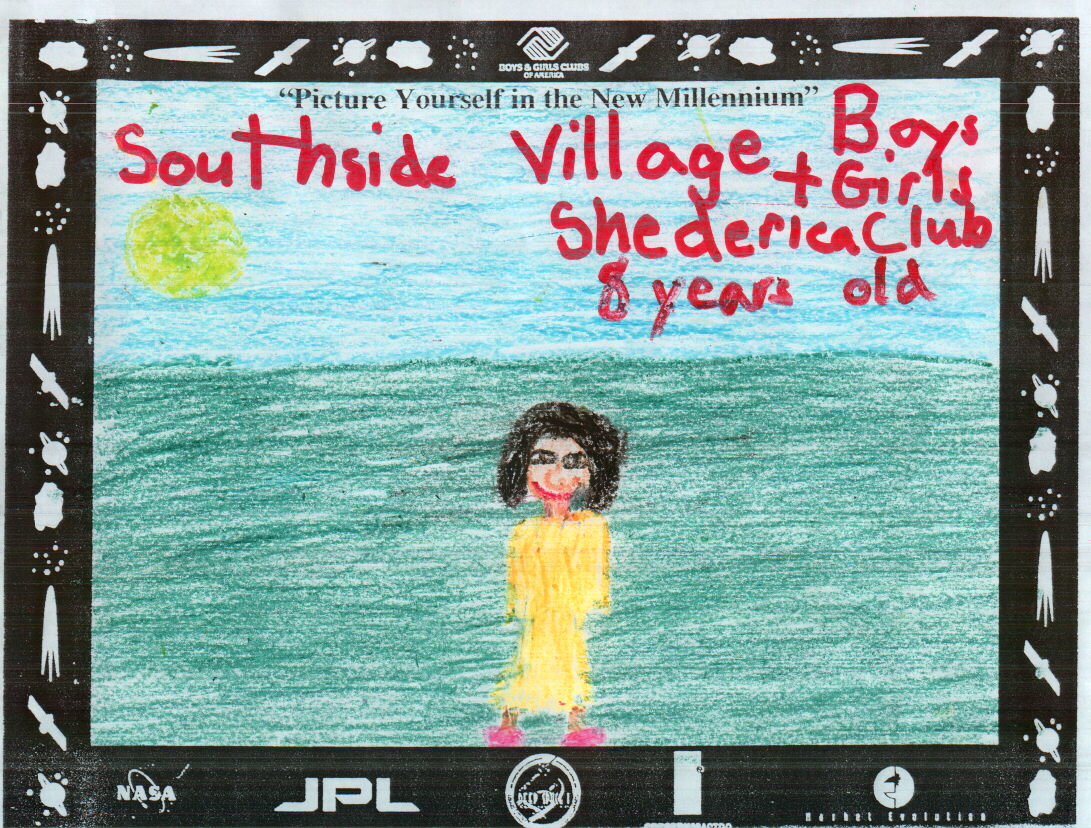 BOYS & GIRLS CLUBS
OF AMERICA
“Picture Yourself in the New Millennium”
Southside Village Boys
+ Girls
Shederica Club
8 years old
NASA
JPL
Market Evolution